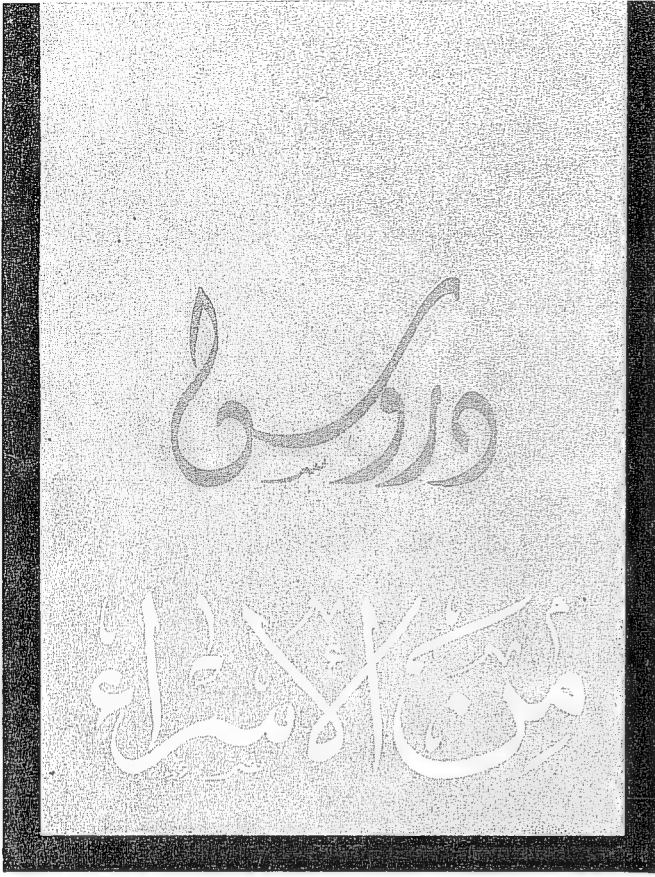 دروس
من الإسراء